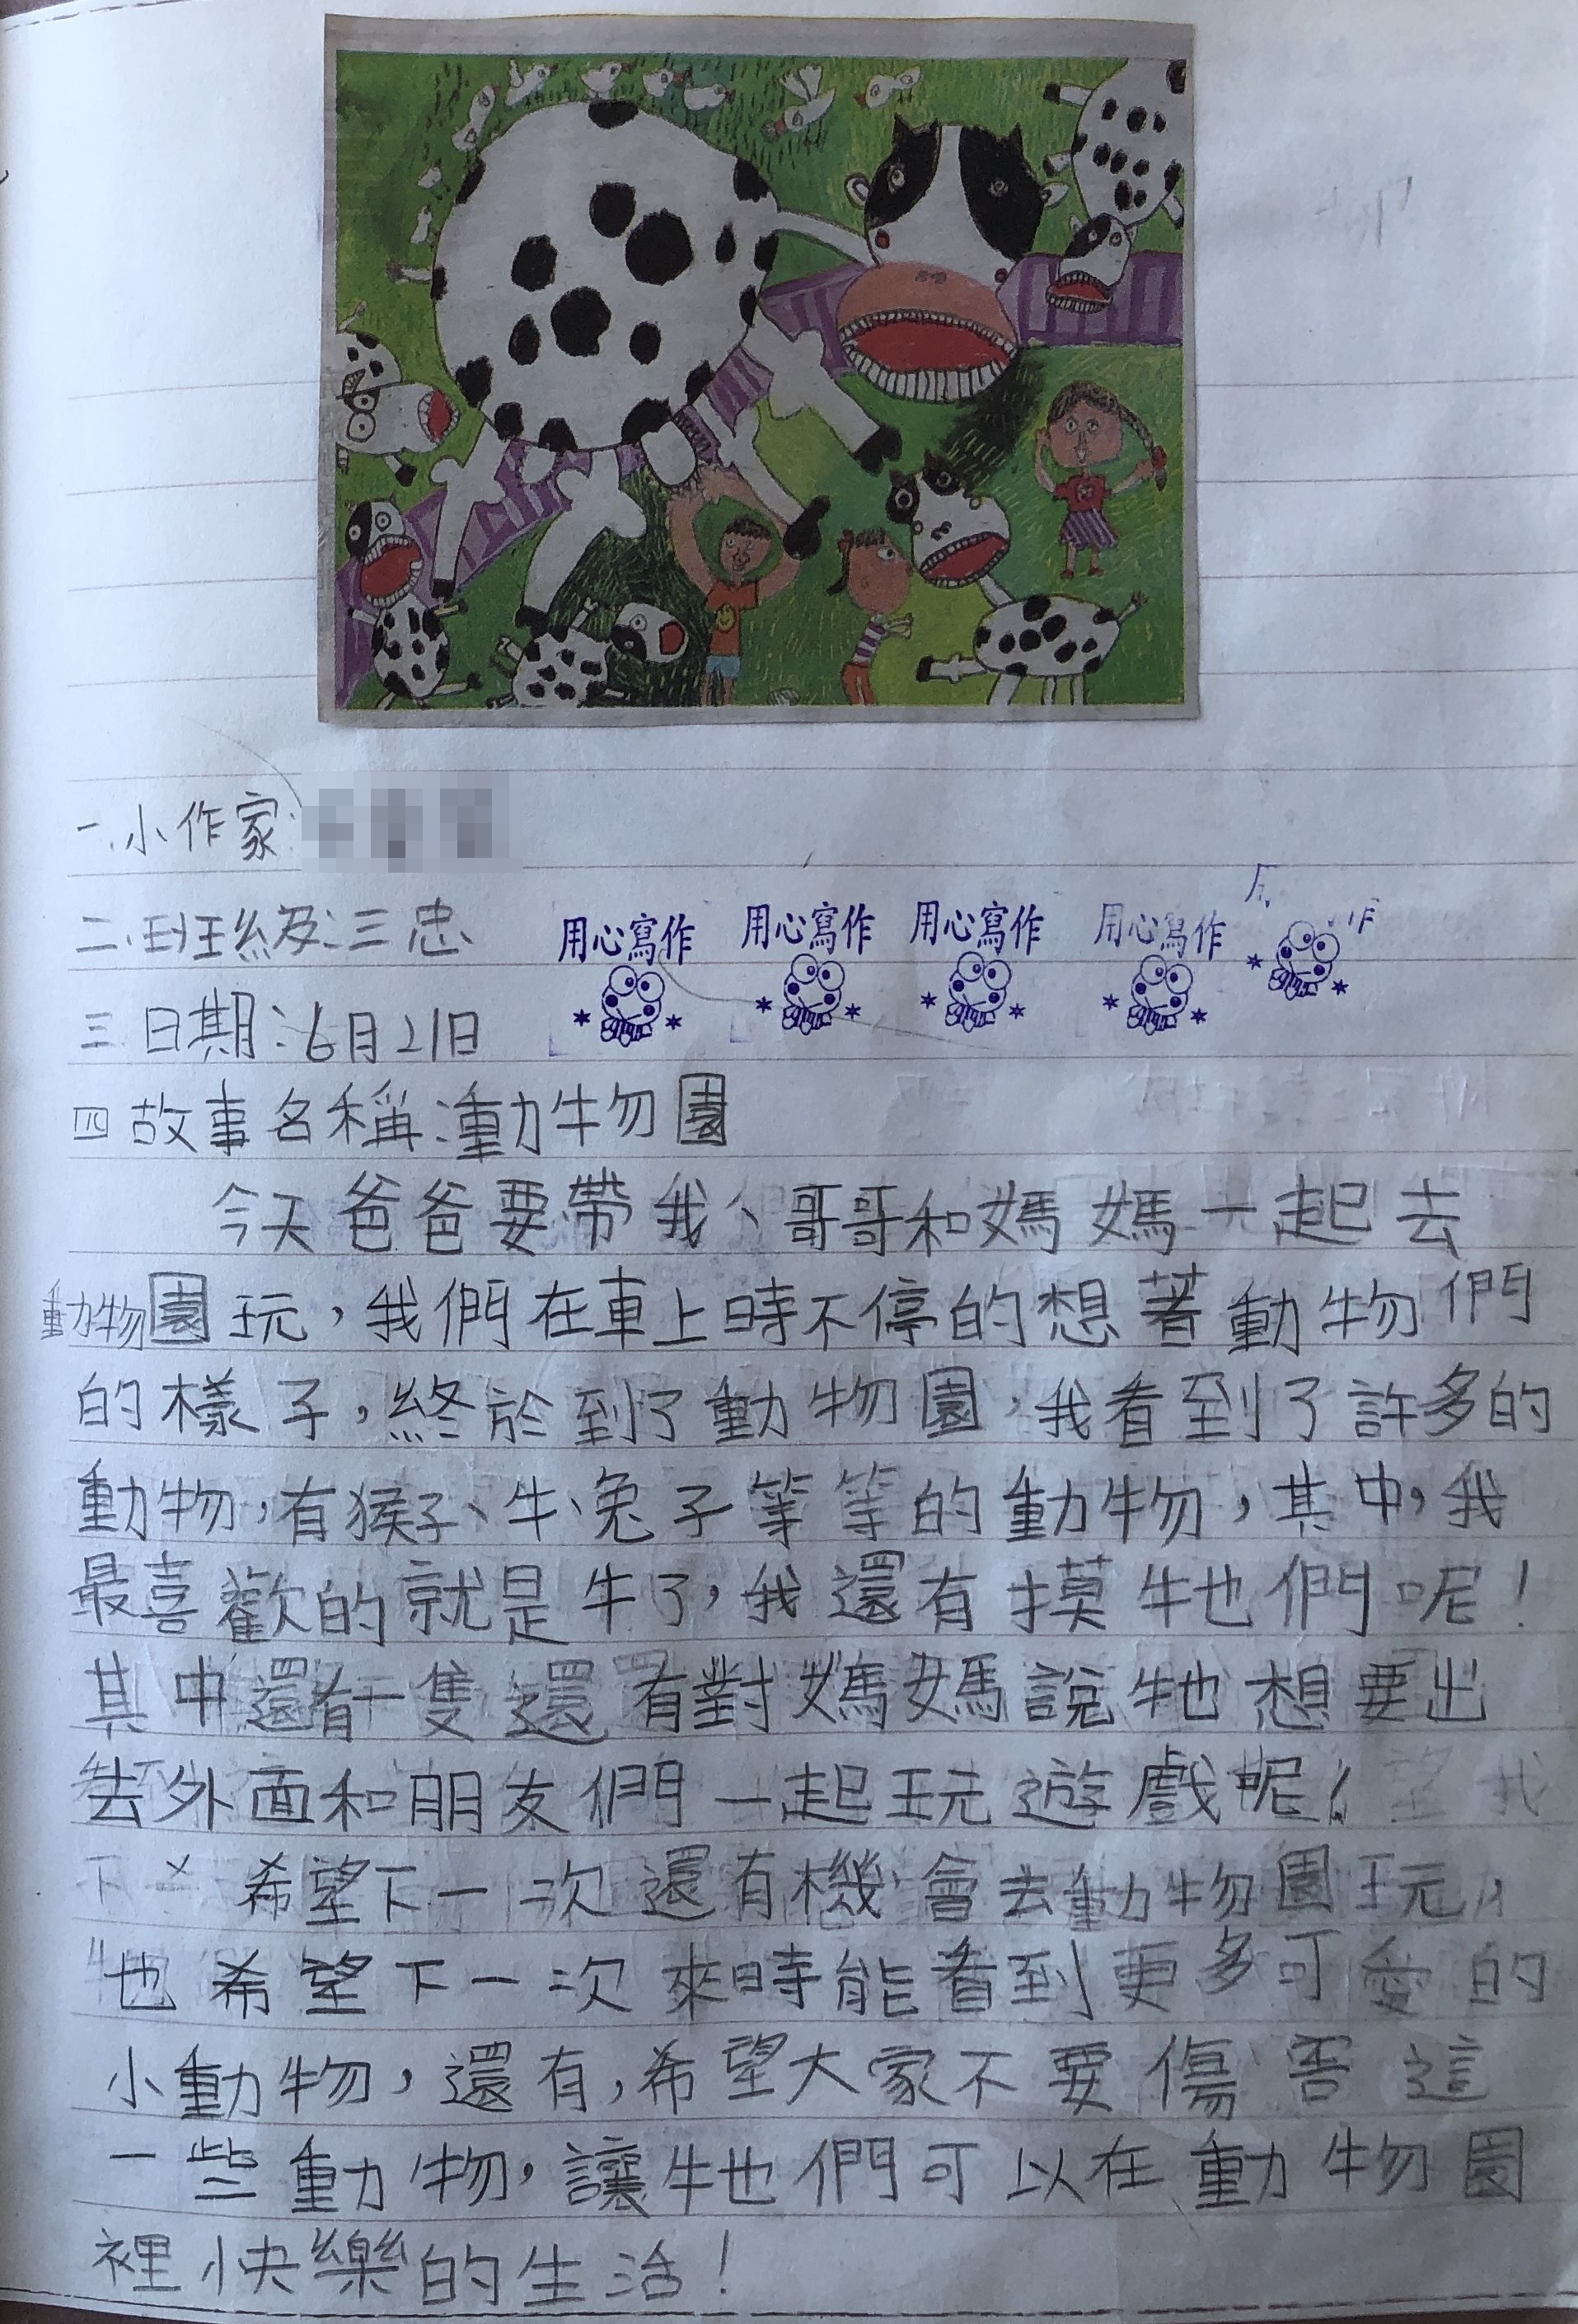 一.小作家:
二.班級:三忠
用心寫作 用心寫作 用心寫作 用心寫作
三.日期:6月21日
四故事名稱:動物園
今天爸爸要帶我、哥哥和媽媽一起去
動物園玩,我們在車上時不停的想著動物們
的樣子,終於到了動物園,我看到了許多的
動物,有猴子、牛、兔子等等的動物,其中,我
最喜歡的就是牛了,我還有摸牠們呢!
其中還有一隻還有對媽媽說牠想要出
去外面和朋友們一起玩遊戲呢!
希望下一次還有機會去動物園玩,
也希望下一次來時能看到更多可愛的
小動物,還有,希望大家不要傷害這
一些動物,讓牠們可以在動物園
裡快樂的生活!